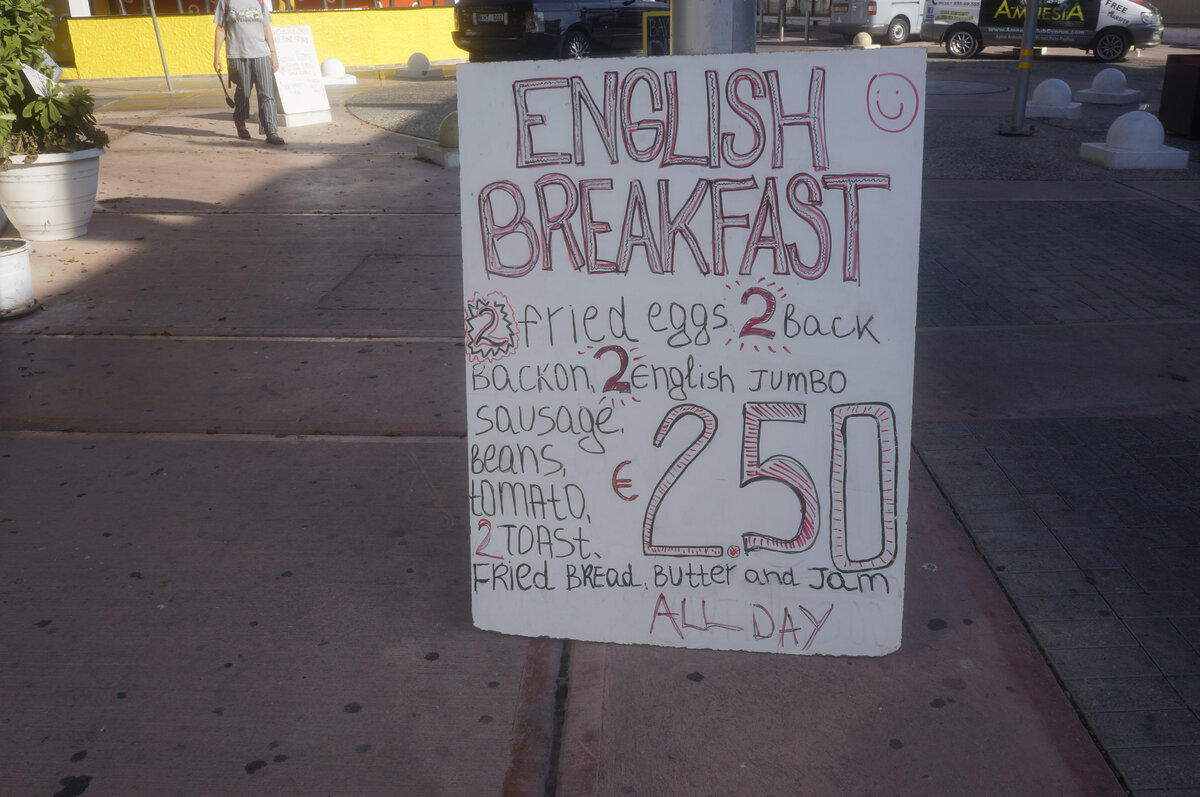 ENGLISH
BREAKFAST
2 fried eggs 2 Back
Backon, 2 English JUMBO
sausage.
Beans,
tomato,
€2.50
2 TOAST.
Fried Bread. Butter and Jam
ALL DAY
AMNESIA
FREE